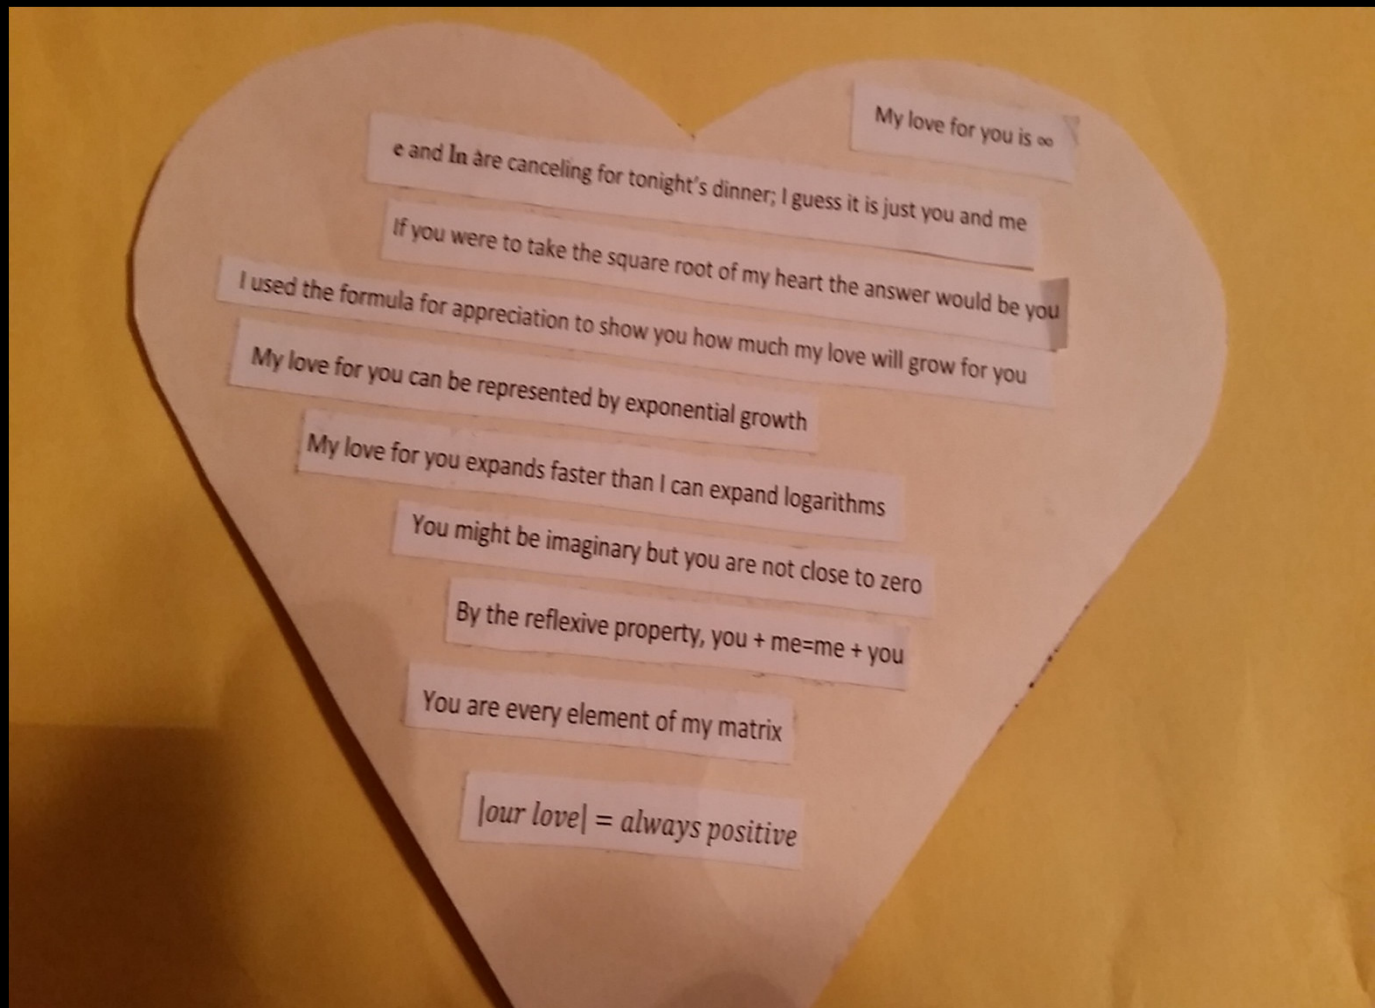 My love for you is ∞
e and ln are canceling for tonight's dinner; I guess it is just you and me
If you were to take the square root of my heart the answer would be you
I used the formula for appreciation to show you how much my love will grow for you
My love for you can be represented by exponential growth
My love for you expands faster than I can expand logarithms
You might be imaginary but you are not close to zero
By the reflexive property, you + me=me + you
You are every element of my matrix
|our love| = always positive